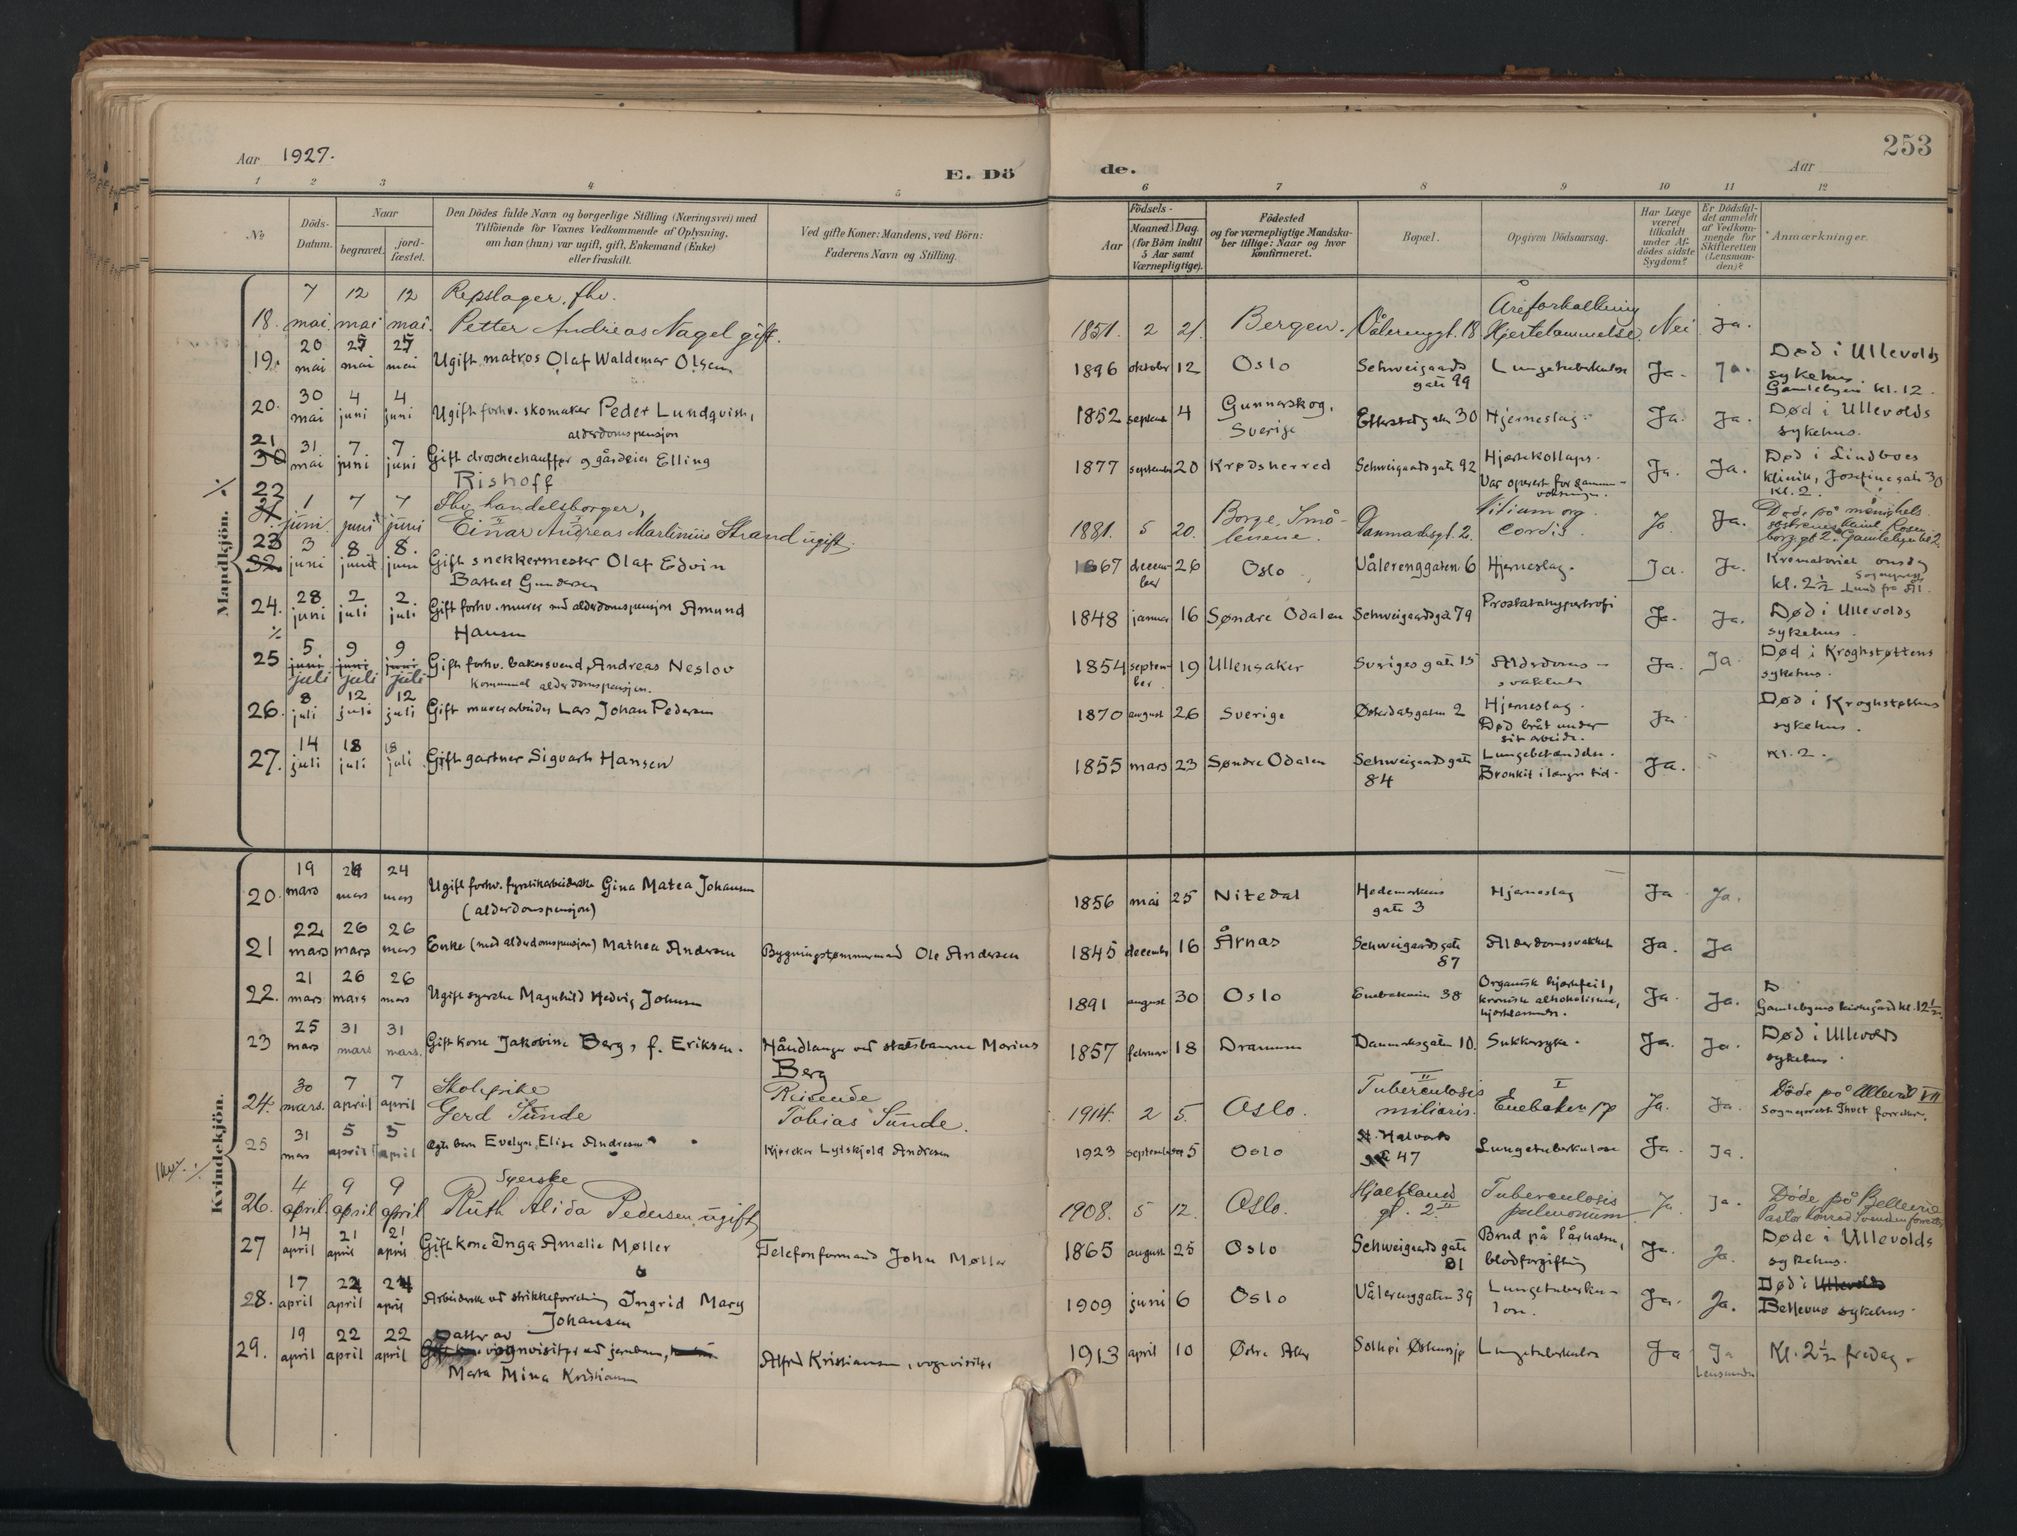 253
Aar 1927.
E. Dö
de.
Aar
1 2 3 4 5 6 7 8 9 10 11 12
No
Döds-
Datum.
Naar
begravet.
jord-
fæstet.
Den Dödes fulde Navn og borgerlige Stilling (Næringsvei) med
Tilföiende for Voxnes Vedkommende af Oplysning,
om han (hun) var ugift, gift, Enkemand (Enke)
eller fraskilt.
Ved gifte Koner: Mandens, ved Börn:
Faderens Navn og Stilling.
Födsels-
Aar
Maaned. Dag.
(for Börn indtil
5 Aar samt
Værnepligtige).
Födested
og for værnepligtige Mandska-
ber tillige: Naar og hvor
konfirmeret.
Bopæl.
Opgiven Dödsaarsag.
Har Læge
været
tilkaldt
under Af-
dödes sidste
Sygdom?
Er Dödsfal-
det anmeldt
af Vedkom-
mende for
Skifteretten
(Lensman-
den)?
Anmærkninger.
Mandkjön.
18. 7 mai 12 mai 12 mai. Repslager, fhv.
Petter Andreas Nagel gift.
1851. 2 21. Bergen. Vålerenggt. 18 Åreforkalkning
Hjertelammelse. Nei Ja.
19. 20 mai 25 mai 25 mai Ugift matros Olaf Waldemar Olsen
1896 oktober 12 Oslo Schweigaards
gate 99 Lungetuberkulose Ja. Ja. Død i Ullevolds
sykehus.
Gamlebyen kl. 12.
20. 30 mai 4 juni 4 juni Ugift forhv. skomaker Peder Lundqvist,
alderdomspensjon
1852 septemb 4 Gunnarskog,
Sverige Etterstadgaten 30 Hjerneslag. Ja. Ja. Død i Ullevolds
sykehus.
21 30 31 mai 7 juni 7 juni Gift droschechauffør og gårdeier Elling
Rishoff
1877 september 20 Krødsherred Schweigaardsgate 92 Hjertekollaps.
Var operert for Ja. Ja. Død i Lindboes
klinik, Josefinegate 30
kl. 2.
22 1 juni 7 juni 7 juni Fhv. handelsborger,
Einar Andreas Martinius Strand ugift.
1881. 5 20. Borge, Små-
lenene. Danmarksgt. 2. Vitium org.
cordis Ja Ja. Døde på menighets
23 32. 3 juni 8 juni 8. juni Gift snekkermester Olaf Edvin
Barthel Gundersen
1867 decem-
ber 26 Oslo Vålerenggaten 6 Hjerneslag. Ja. Ja. Krematoriet onsdag
kl. 2½
24. 28 juni 2 juli 2 juli Gift forhv. murer med alderdomspensjon Amund
Hansen
1848 januar 16 Søndre Odalen Schweigaardsgt 79 Prostatahypertrofi Ja. Ja. Død i Ullevolds
sykehus.
25 5 juni juli 9 juni juli 9 juni juli Gift forhv. bakersvend, Andreas Neslov
Kommunal alderdomspensjon.
1854 septem-
ber 19 Ullensaker Sverigesgate 15 Alderdoms-
svakhet Ja. Ja Død i Kroghstøttens
sykehus.
26. 8 juli 12 juli 12 juli Gift murerarbeider Lars Johan Pedersen
1870 august 26 Sverige Østerdalsgaten 2 Hjerneslag.
Død bråt under
sit arbeide. Ja Død i Kroghstøttens
sykehus.
27. 14 juli 18 juli 18 juli Gift gartner Sigvart Hansen
1855 mars 23 Søndre Odalen Schweigaardsgate
84 Lungebetændelse.
Bronkit i lengre tid. Ja. " kl. 2.
Kvindekjön.
20. 19 mars 24 mars 24 mars Ugift forhv. fyrstikarbeiderske Gina Matea Johansen
(alderdomspensjon)
1856 mai 25 Nitedal Hedemarkens
gate 3 Hjerneslag Ja Ja.
21 22 mars 26 mars 26 mars Enke (med alderdomspensjon) Mathea Andersen Bygningstømmermand Ole Andersen
1845 december 16 Årnas Schweigaardsgate
87 Alderdomssvakhet Ja. Ja
22. 21 mars 26 mars 26 mars Ugift syerske Magnhild Hedvig Johnsen
1891 august 30 Oslo Enebakveien 38 Organisk hjertefeil,
kronisk alkoholisme,
hjertelammelse. Ja. Ja. D
Gamlebyens kirkegård kl. 12½
23 25 mars 31 mars 31 mars. Gift kone Jakobine Berg, f. Eriksen. Håndlanger ved statsbanerne Marius
Berg
1857 februar 18 Drammen Danmarksgaten 10. Sukkersyke. Ja. Ja. Død i Ullevolds
sykehus.
24. 30 mars. 7 april 7 april Skolepike
Gerd Sunde Reisende
Tobias Sunde.
1914. 2 5. Oslo. II Tuberculosis
miliaris. I Enebakvn 17 Ja. Ja. Døde på Ullevål VII
25 31 mars 5 april 5 april Egte barn Evelyn Elise Andresen Kjørekar Lytskjold Andresen
1923 september 5 Oslo St. Halvards
gt 47 Lungetuberkulose Ja. Ja.
26. 4 april. 9 april 9 april Syerske
Ruth Alida Pedersen ugift
1908. 5 12. Oslo. Hjaltlands
gt. 2 II Tuberculosis
pulmonum Ja. Ja. Døde på Bellevue
Pastor Konrad Svendsen forrettet
27 14 april 21 april 21 april Gift kone Inga Amalie Møller Telefonformand John Møller
1865 august 25 Oslo Schweigaardsgate
81 Brud på lårhalsen,
blodforgiftning Ja. Ja. Døde i Ullevolds
sykehus.
28. 17 april 24 april 24 april Arbeiderske ved strikkeforretning Ingrid Mary
Johansen
1909 juni 6 Oslo Vålerenggaten 39 Lungetuberku-
lose. Ja. Ja. Død i Ullevolds
Bellevue sykehus.
29. 19 april 22 april 22 april Datter av
vognvisitør ved jernbanen,
Marta Mina Kristiansen Alfred Kristiansen, vognvisitør
1913 april 10 Østre Aker Solhøi Østensjø Lungetuberkulose Ja Ja
Lensmanden Kl. 2½ fredag.